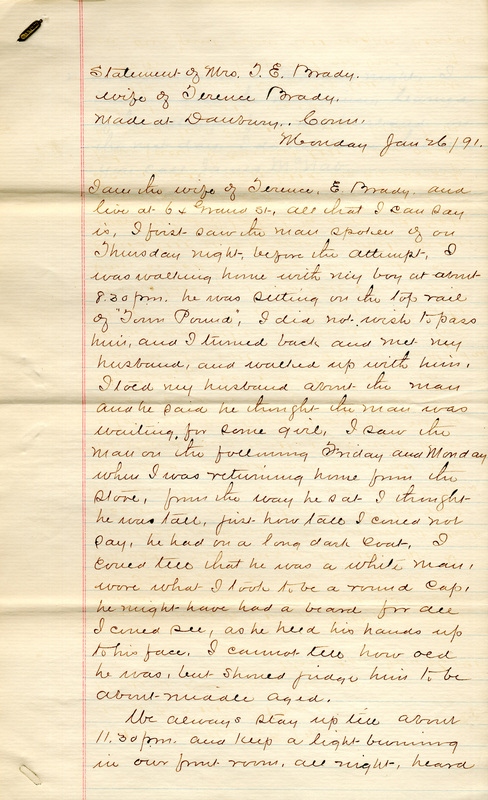 Statement of Mrs. T. E. Brady.
wife of Terence Brady.
Made at Danbury, Conn.
Monday Jan 26/91.
I am the wife of Terence, E Brady. and
live at 64 Grand St, all that I can say
is, I first saw the man spoken of on
Thursday night, before the attempt, I
was walking home with my boy at about
8.30 p.m. he was sitting on the top rail
of "Town Pound", I did not wish to pass
him, and I turned back and met my
husband, and walked up with him,
I told my husband about the man
and he said he thought the man was
waiting for some girl, I saw the
man on the following Friday and Monday
when I was returning home from the
store, from the way he sat I thought
he was tall, just how tall I could not
say, he had on a long dark coat, I
could tell that he was a white man,
wore what I took to be a round cap,
he might have had a beard for all
I could see, as he held his hands up
to his face, I cannot tell how old
he was, but should judge him to be
about middle aged.
We always stay up till about
11.30 p.m. and keep a light burning
in our front room, all night, heard